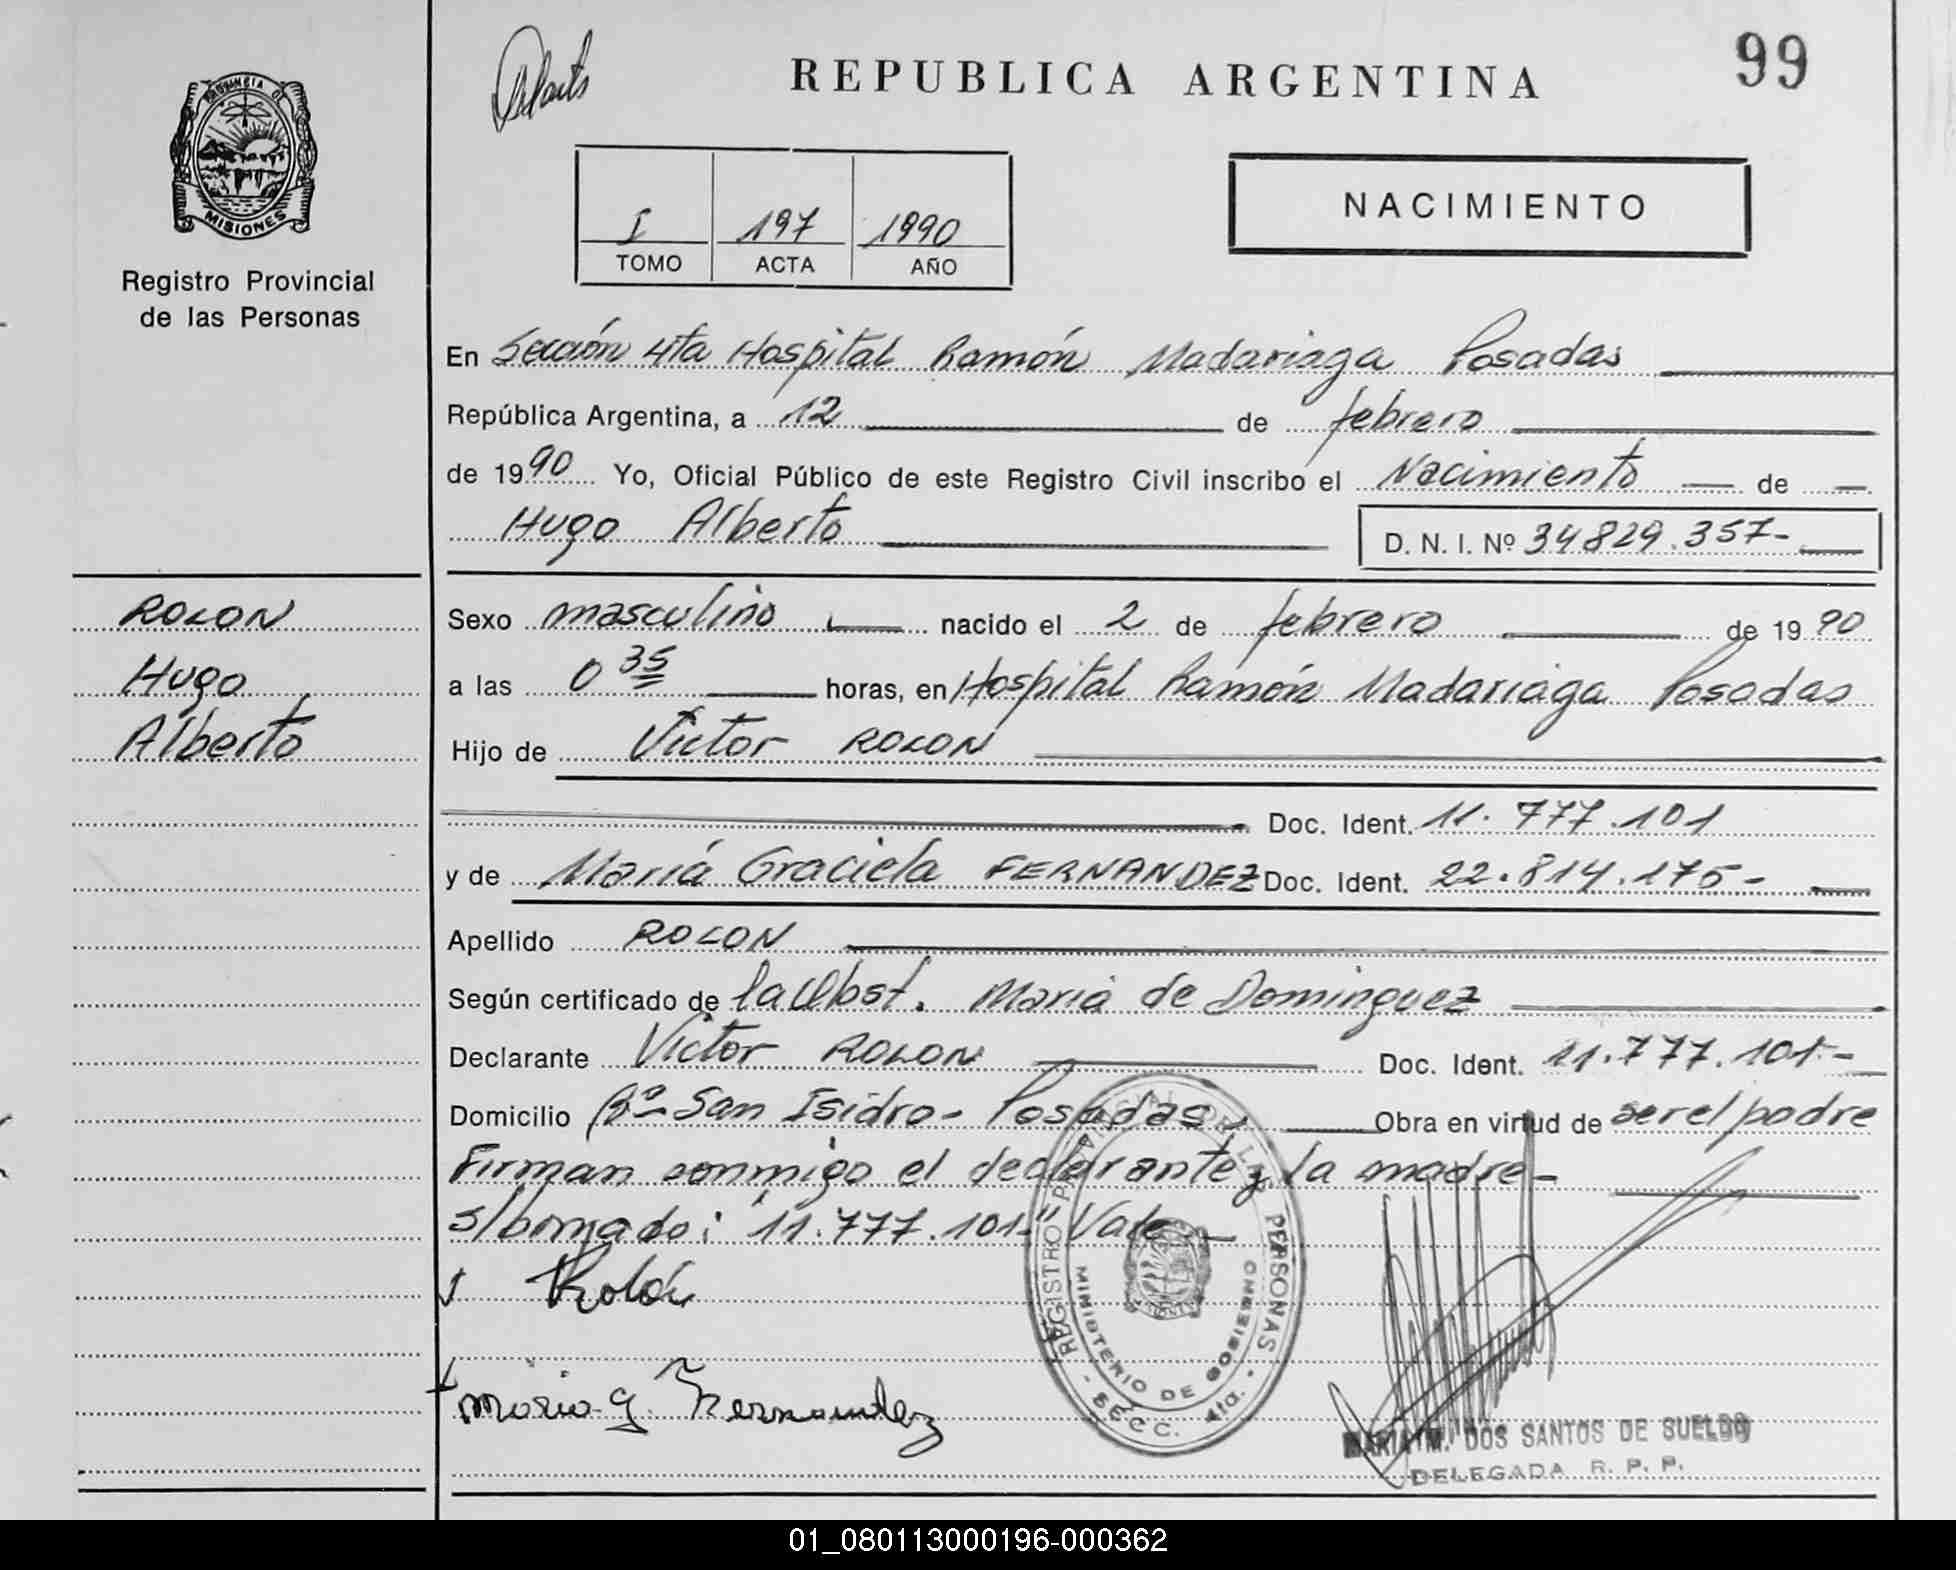 99
REPUBLICA ARGENTINA
PROVINCIA DE
MISIONES
Registro Provincial
de las Personas
I 197 1990
TOMO ACTA AÑO
NACIMIENTO
En Sección 4ta Hospital Ramón Madariaga Posadas
República Argentina, a 12 de febrero
de 1990 Yo, Oficial Público de este Registro Civil inscribo el Nacimiento de
Hugo Alberto D. N. I. Nº 34829.357-
ROLON
Hugo
Alberto
Sexo masculino nacido el 2 de febrero de 1990
a las 0 35 horas, en Hospital Ramón Madariaga Posadas
Hijo de Victor ROLON
Doc. Ident. 11.777.101
y de María Graciela FERNANDEZ Doc. Ident. 22.814.175-
Apellido ROLON
Según certificado de la Obst. Maria de Dominguez
Declarante Victor ROLON Doc. Ident. 11.777.101-
Domicilio Bº San Isidro- Posadas- Obra en virtud de ser el padre
Firman conmigo el declarante y la madre-
s/borrado: "11.777.101-" Vale-
Rolón
Maria G. Fernandez
REGISTRO PROVINCIAL DE LAS PERSONAS
MINISTERIO DE GOBIERNO
- SECC. 4ta. -
MARIA M. DOS SANTOS DE SUELDO
DELEGADA R. P. P.
01_080113000196-000362